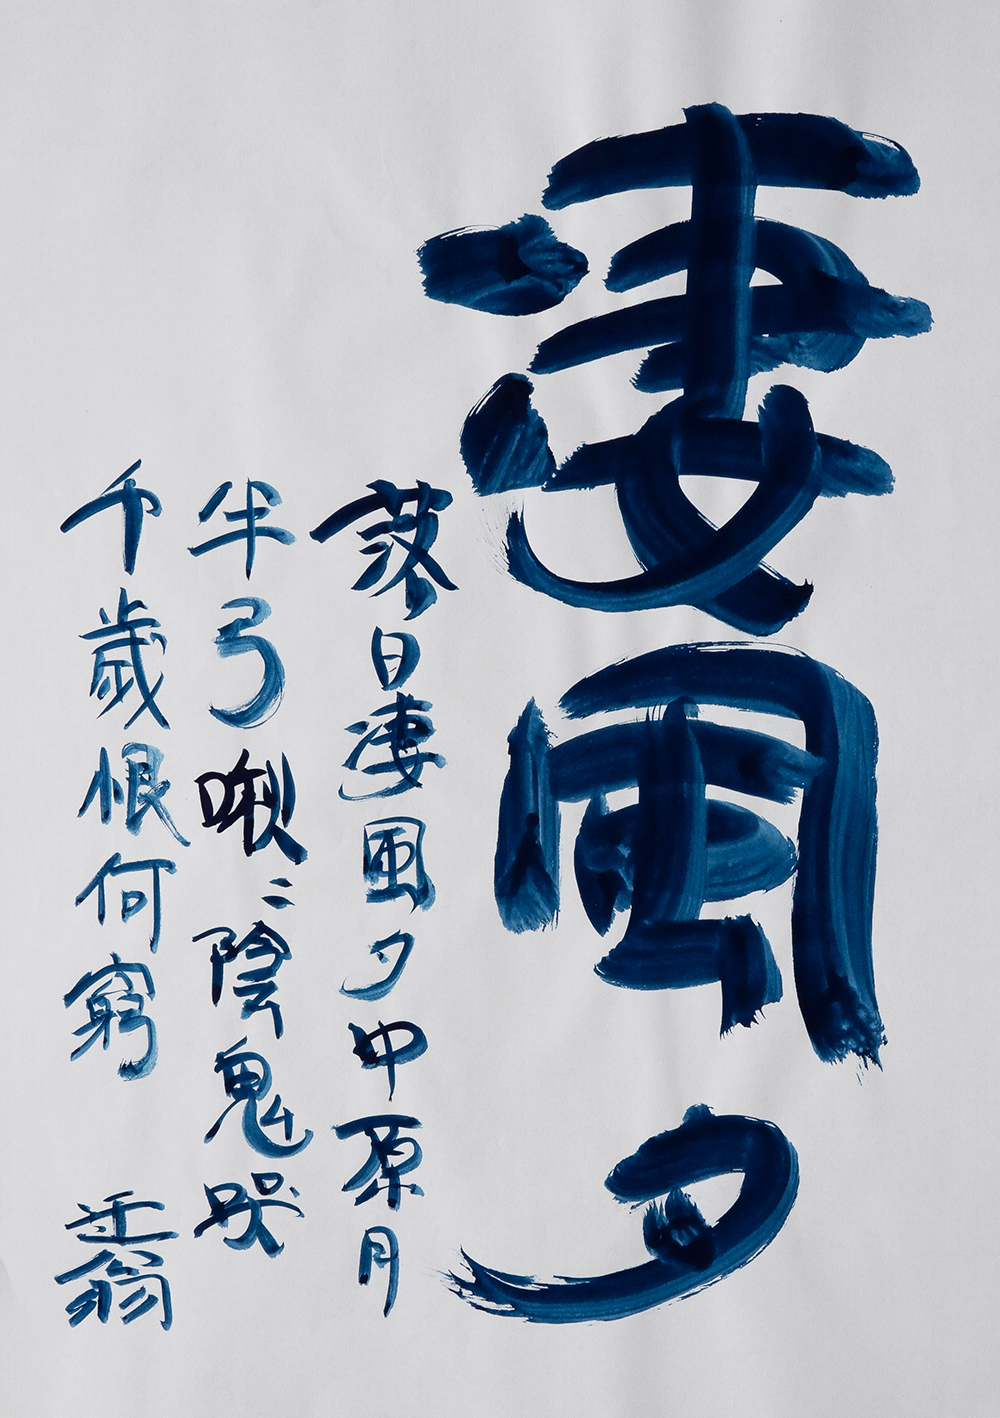 凄風夕
落日凄風夕中原月
半弓啾〻陰鬼哭
千歳恨何窮
迂翁